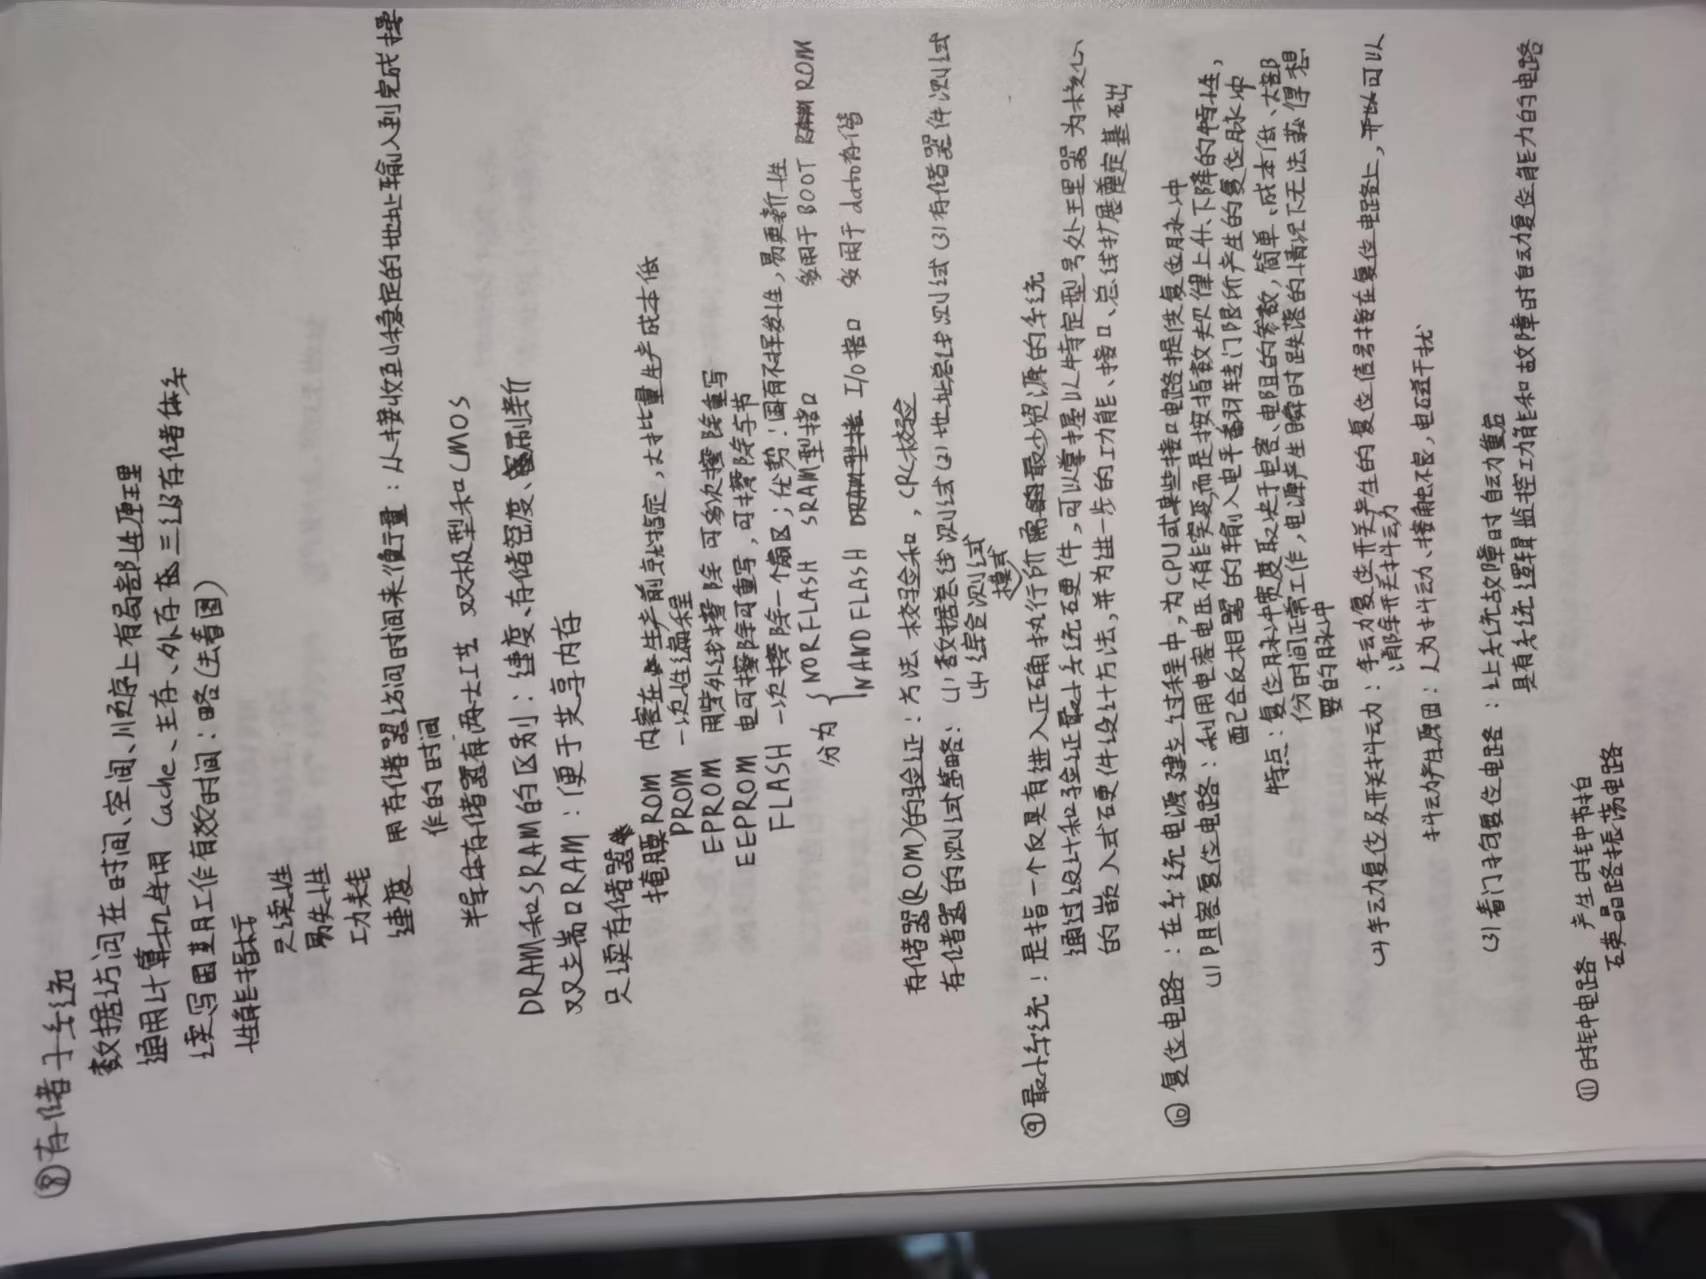 ⑧存储子系统
数据访问在时间、空间、顺序上有局部性原理
通用计算机使用 Cache、主存、外存 三级存储体系
读写周期工作有效时间：略(去看图)
性能指标
只读性
易失性
功耗
速度 用存储器访问时间来衡量：从接收到稳定的地址输入到完成操
作的时间
半导体存储器有两大工艺 双极型和CMOS
DRAM和SRAM的区别：速度、存储密度、刷新
双端口RAM：便于共享内存
只读存储器
掩膜ROM 内容在生产前就指定，大批量生产成本低
PROM 一次性编程
EPROM 用紫外线擦除 可多次擦除重写
EEPROM 电可擦除可重写，可擦除字节
FLASH 一次擦除一个扇区；优势：固有不挥发性，易更新性
分为 { NOR FLASH SRAM型接口 多用于 BOOT RAM ROM
NAND FLASH DRAM型接 I/O接口 多用于 data存储
存储器(ROM)的验证：方法 校验和，CRC校验
存储器的测试策略：(1)数据总线测试(2)地址总线测试(3)存储器件测试
(4)综合测试
模式
⑨最小系统：是指一个仅具有进入正确执行所需的最少资源的系统
通过设计和验证最小系统硬件，可以掌握以特定型号处理器为核心
的嵌入式硬件设计方法，并为进一步的功能、接口、总线扩展奠定基础
⑩复位电路：在系统电源建立过程中，为CPU或某些接口电路提供复位脉冲
(1)阻容复位电路：利用电容电压不能突变而是按指数规律上升、下降的特性，
配合反相器的输入电平翻转门限所产生的复位脉冲
特点：复位脉冲宽度取决于电容、电阻的参数，简单、成本低、大部
份时间正常工作，电源产生瞬时跌落的情况下无法获得想
要的脉冲
(2)手动复位及开关抖动：手动复位开关产生的复位信号接在复位电路上，可以
消除开关抖动
抖动产生原因：人为抖动、接触不良，电磁干扰
(3)看门狗复位电路：让系统故障时自动重启
具有系统逻辑监控功能和故障时自动复位能力的电路
⑪时钟电路 产生时钟节拍
石英晶路振荡电路